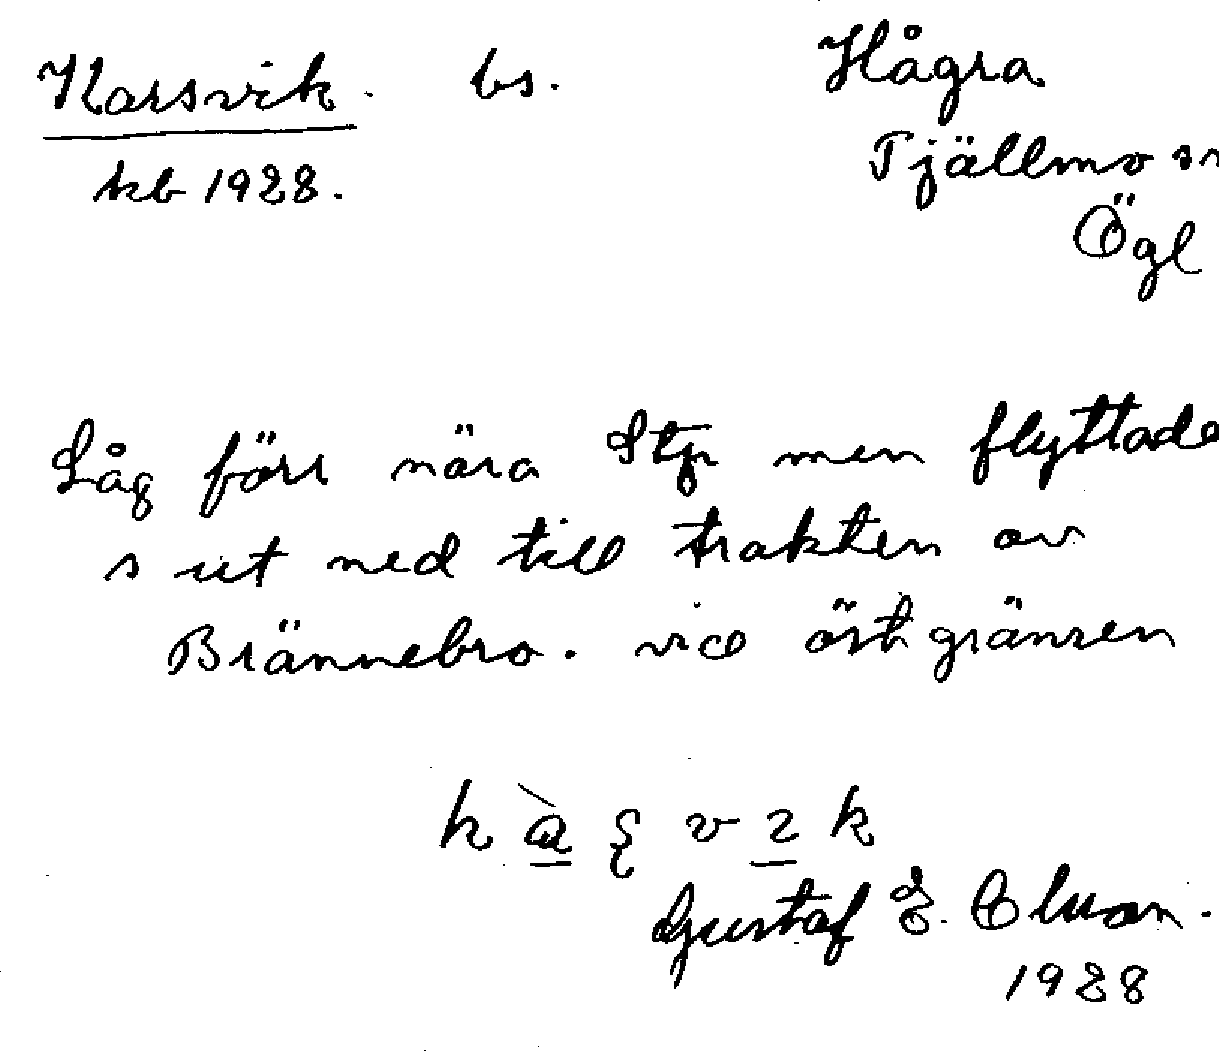 Karsvik. bs. Hågra
kb 1928. Tjällmo sn
Ögl
Låg förr nära Stp men flyttade
s ut ned till trakten av
Brännebro. vid östgränsen
k à ʂ v ɪ k
Gustaf E.
1928